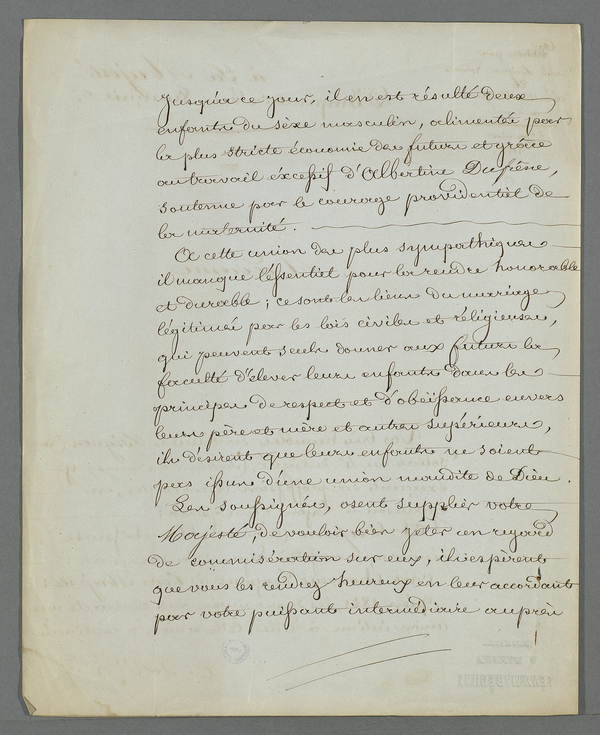 Jusqu'à ce jour, il en est résulté deux
enfants du sèxe masculin, alimentés par
la plus stricte économie des futurs et grâce
au travail excessif d'Albertine Dufrêne,
soutenue par le courage providentiel de
la maternité.
A cette union des plus sympathiques
il manque l'éssentiel pour la rendre honorable
et durable ; ce sont les liens du mariage
légitimés par les lois civiles et réligieuses,
qui peuvent seuls donner aux futurs la
faculté d'élever leurs enfants dans les
principes de respect et d'obéissance envers
leurs père et mère et autres supérieurs,
ils désirent que leurs enfants ne soient
pas issus d'une union maudite de Dieu.
Les soussignés, osent supplier votre
Majesté, de vouloir bien jeter un regard
de commisération sur eux, ils espèrent
que vous les rendrez heureux en leur accordant
par votre puissant intermédiaire auprès